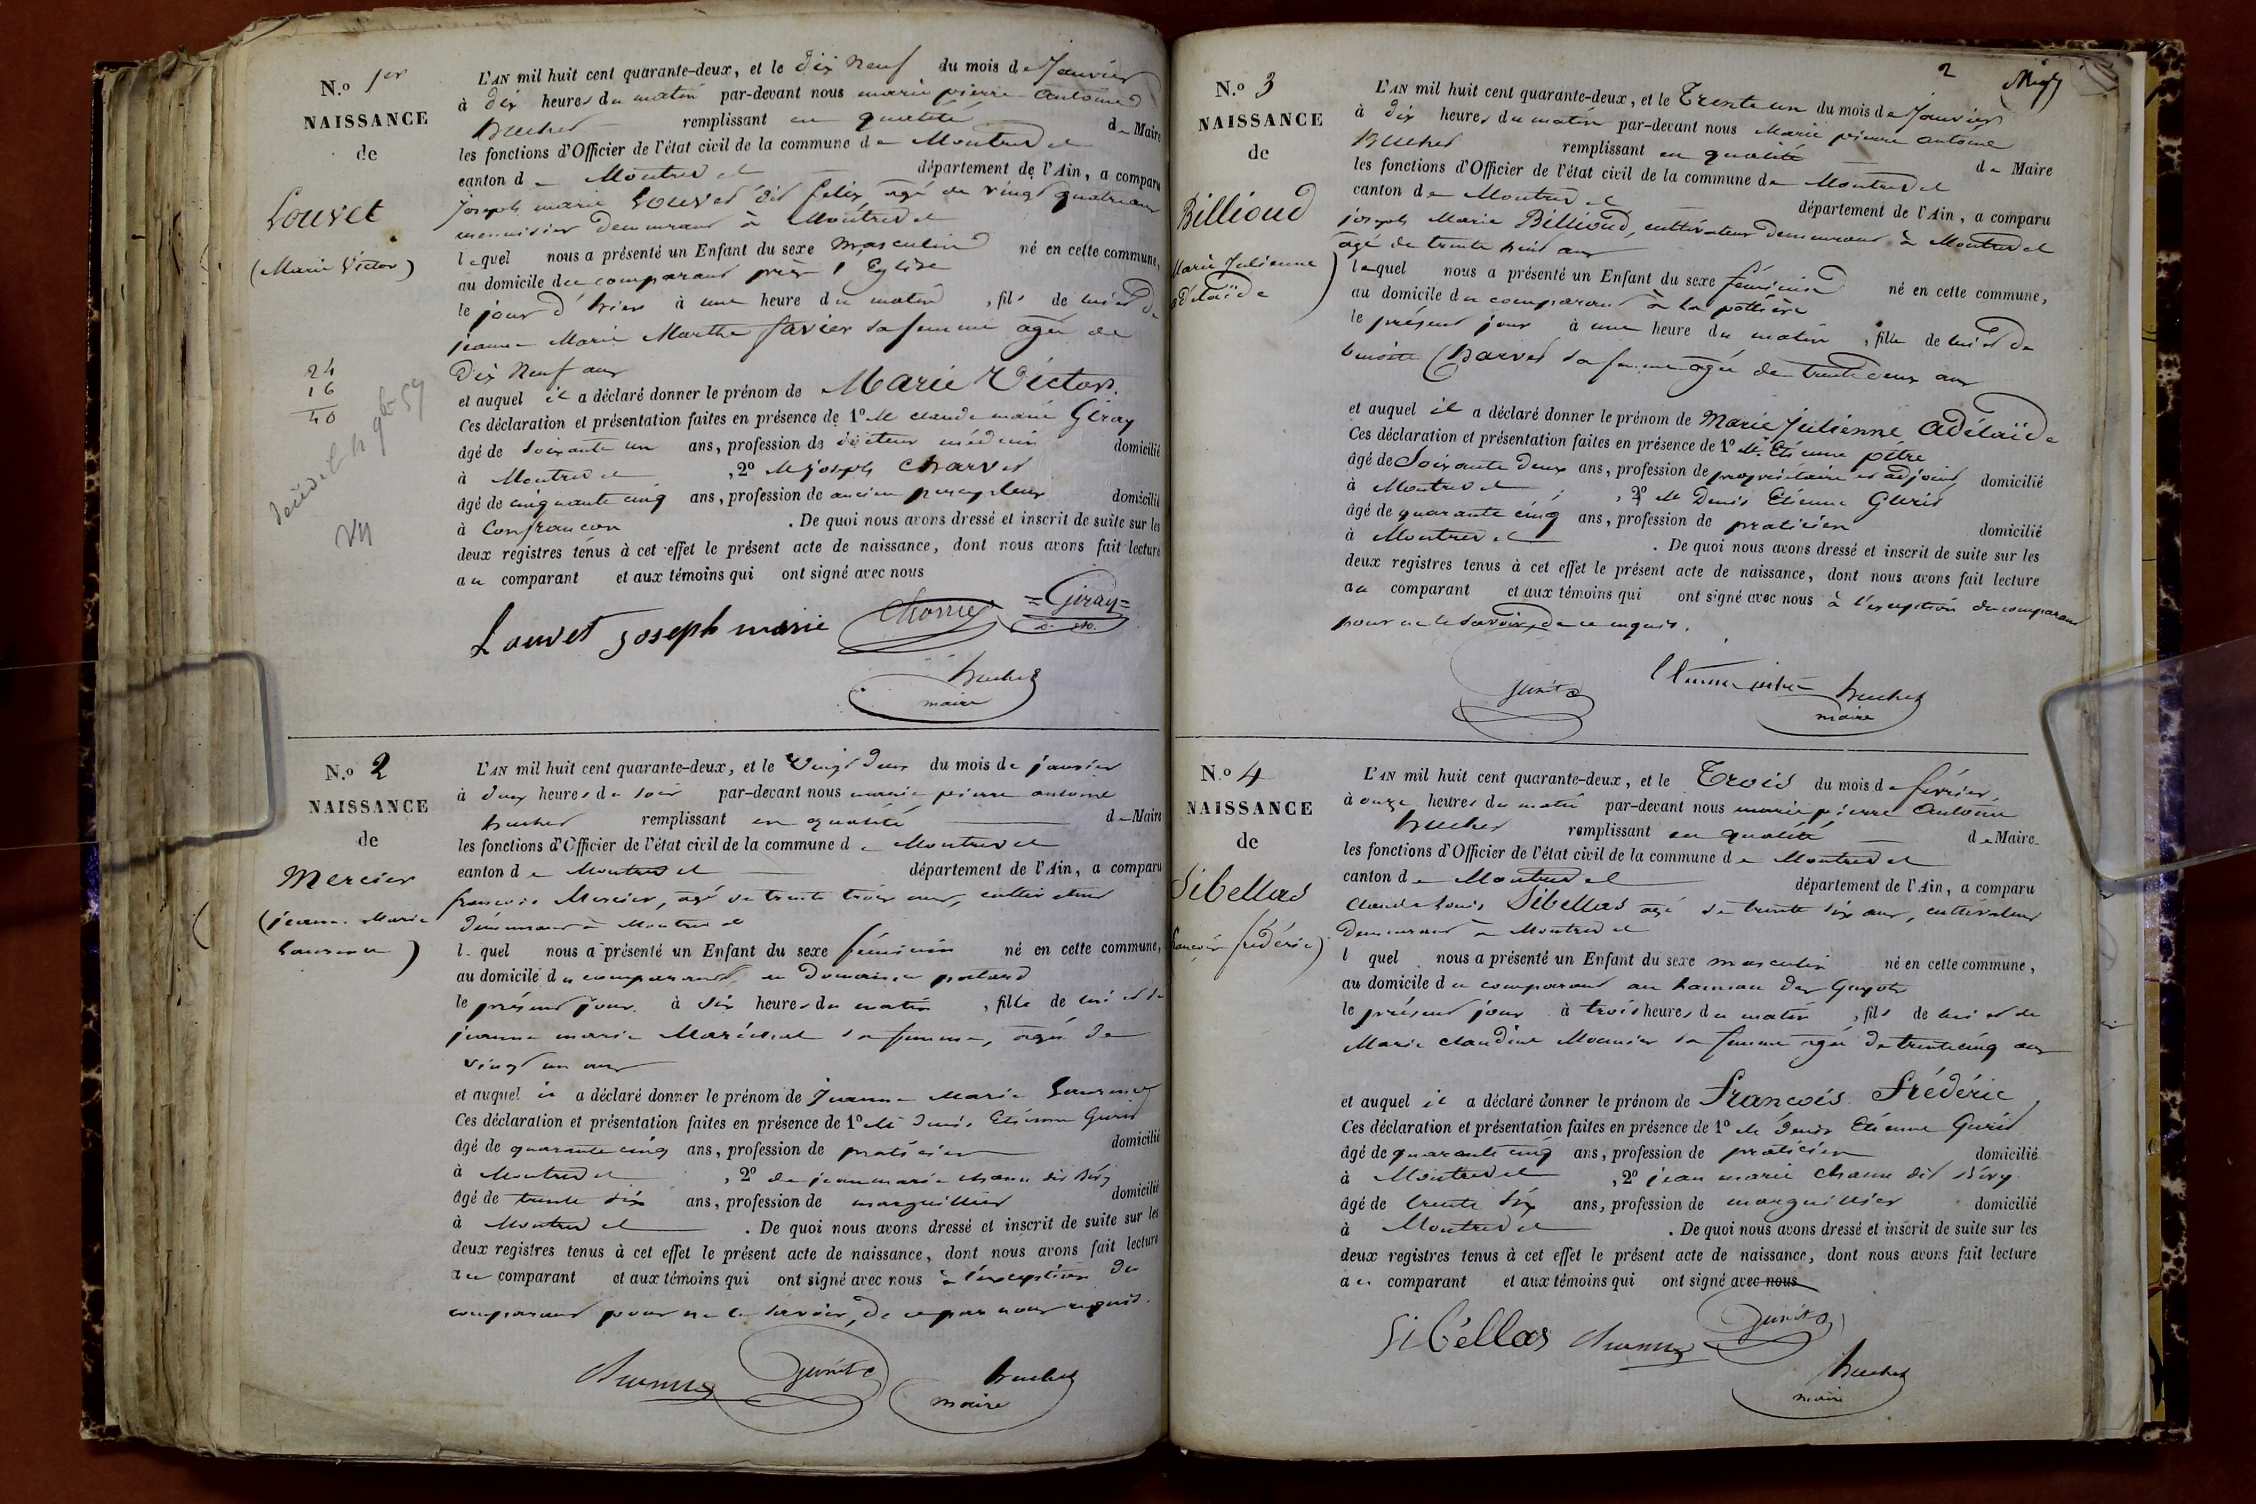 N.o 1er
NAISSANCE
de
Louvet
(Marie Victor)
24
16
40
L'AN mil huit cent quarante-deux, et le dix neuf du mois de Janvier
à dix heures du matin par-devant nous marie pierre antoine
remplissant en qualité de Maire
les fonctions d'Officier de l'état civil de la commune de Montrevel
canton de Montrevel département de l'Ain, a comparu
joseph marie Louvet dit felix, agé de vingt quatre ans
menuisier demeurant à Montrevel
lequel nous a présenté un Enfant du sexe Masculin né en cette commune,
au domicile du comparant près l'Eglise
le jour d'hier à une heure du matin, fils de lui et de
jeanne Marie Marthe favier sa femme agée de
dix Neuf ans
et auquel il a déclaré donner le prénom de Marie Victor.
Ces déclaration et présentation faites en présence de 1o M claude marie Giray
âgé de soixante un ans, profession de docteur médecin domicilié
à Montrevel, 2o M joseph Charvet
âgé de cinquante cinq ans, profession de ancien percepteur domicilié
à Confrancon. De quoi nous avons dressé et inscrit de suite sur les
deux registres tenus à cet effet le présent acte de naissance, dont nous avons fait lecture
au comparant et aux témoins qui ont signé avec nous
Louvet joseph marie
=Giray=
maire
N.o 2
NAISSANCE
de
Mercier
(jeanne Marie
Laurence)
L'AN mil huit cent quarante-deux, et le Vingt deux du mois de janvier
à deux heures du soir par-devant nous marie pierre antoine
remplissant en qualité de Maire
les fonctions d'Officier de l'état civil de la commune de Montrevel
canton de Montrevel département de l'Ain, a comparu
francois Mercier, agé de trente trois ans, cultivateur
demeurant à Montrevel
l quel nous a présenté un Enfant du sexe féminin né en cette commune,
au domicile du comparant, en Domaine
le présent jour à six heures du matin, fille de lui et de
jeanne marie Maréchal sa femme, agée de
vingt un ans
et auquel il a déclaré donner le prénom de Jeanne Marie Laurence
Ces déclaration et présentation faites en présence de 1o M denis Etienne
âgé de quarante cinq ans, profession de praticien domicilié
à Montrevel, 2o de jean marie
âgé de trente six ans, profession de marguillier domicilié
à Montrevel. De quoi nous avons dressé et inscrit de suite sur les
deux registres tenus à cet effet le présent acte de naissance, dont nous avons fait lecture
au comparant et aux témoins qui ont signé avec nous à l'exception du
comparant pour ne le savoir, de ce par nous requis.
maire
2
N.o 3
NAISSANCE
de
Billioud
Marie Julienne
adélaïde)
L'AN mil huit cent quarante-deux, et le Trente un du mois de Janvier
à dix heures du matin par-devant nous Marie pierre antoine
remplissant en qualité de Maire
les fonctions d'Officier de l'état civil de la commune de Montrevel
canton de Montrevel département de l'Ain, a comparu
joseph Marie Billioud, cultivateur demeurant à Montrevel
agé de trente huit ans
lequel nous a présenté un Enfant du sexe féminin né en cette commune,
au domicile du comparant à la
le présent jour à une heure du matin, fille de lui et de
benoite Charvet sa femme agée de trente deux ans
et auquel il a déclaré donner le prénom de Marie Julienne adélaïde
Ces déclaration et présentation faites en présence de 1o Mr. Etienne pitre
âgé de Soixante deux ans, profession de propriétaire et adjoint domicilié
à Montrevel, 2o M Denis Etienne
âgé de quarante cinq ans, profession de praticien domicilié
à Montrevel. De quoi nous avons dressé et inscrit de suite sur les
deux registres tenus à cet effet le présent acte de naissance, dont nous avons fait lecture
au comparant et aux témoins qui ont signé avec nous à l'exception du comparant
pour ne le savoir, de ce requis.
maire
N.o 4
NAISSANCE
de
Sibellas
francois frédéric)
L'AN mil huit cent quarante-deux, et le Trois du mois de février
à onze heures du matin par-devant nous marie pierre antoine
remplissant en qualité de Maire
les fonctions d'Officier de l'état civil de la commune de Montrevel
canton de Montrevel département de l'Ain, a comparu
Claude Louis Sibellas agé de trente six ans, cultivateur
demeurant à Montrevel
l quel nous a présenté un Enfant du sexe masculin né en cette commune,
au domicile du comparant au hameau des Guyots
le présent jour à trois heures du matin, fils de lui et de
Marie claudine Monnier sa femme agée de trente cinq ans
et auquel il a déclaré donner le prénom de Francois Frédéric
Ces déclaration et présentation faites en présence de 1o M denis Etienne
âgé de quarante cinq ans, profession de praticien domicilié
à Montrevel, 2o jean marie
âgé de trente six ans, profession de marguillier domicilié
à Montrevel. De quoi nous avons dressé et inscrit de suite sur les
deux registres tenus à cet effet le présent acte de naissance, dont nous avons fait lecture
au comparant et aux témoins qui ont signé avec nous
Sibellas
maire